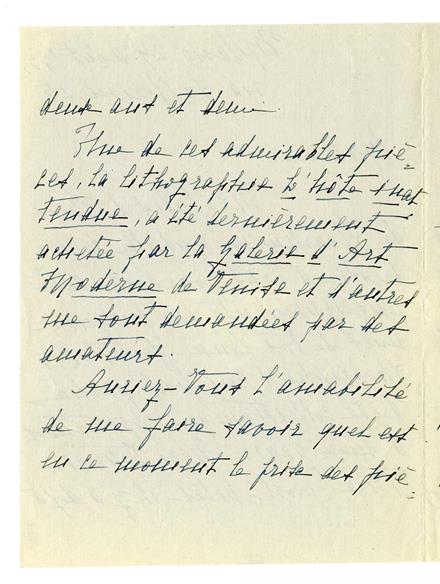 deux ans et demi.
Une de ces admirables piè=
ces, la lithographie L'hôte inat
tendue, a été dernièrement
achetée par la Galerie d'Art
Moderne de Venise et d'autres
me sont demandées par des
amateurs.
Auriez-Vous l'amabilité
de me faire savoir quel est
en ce moment le prix des piè=